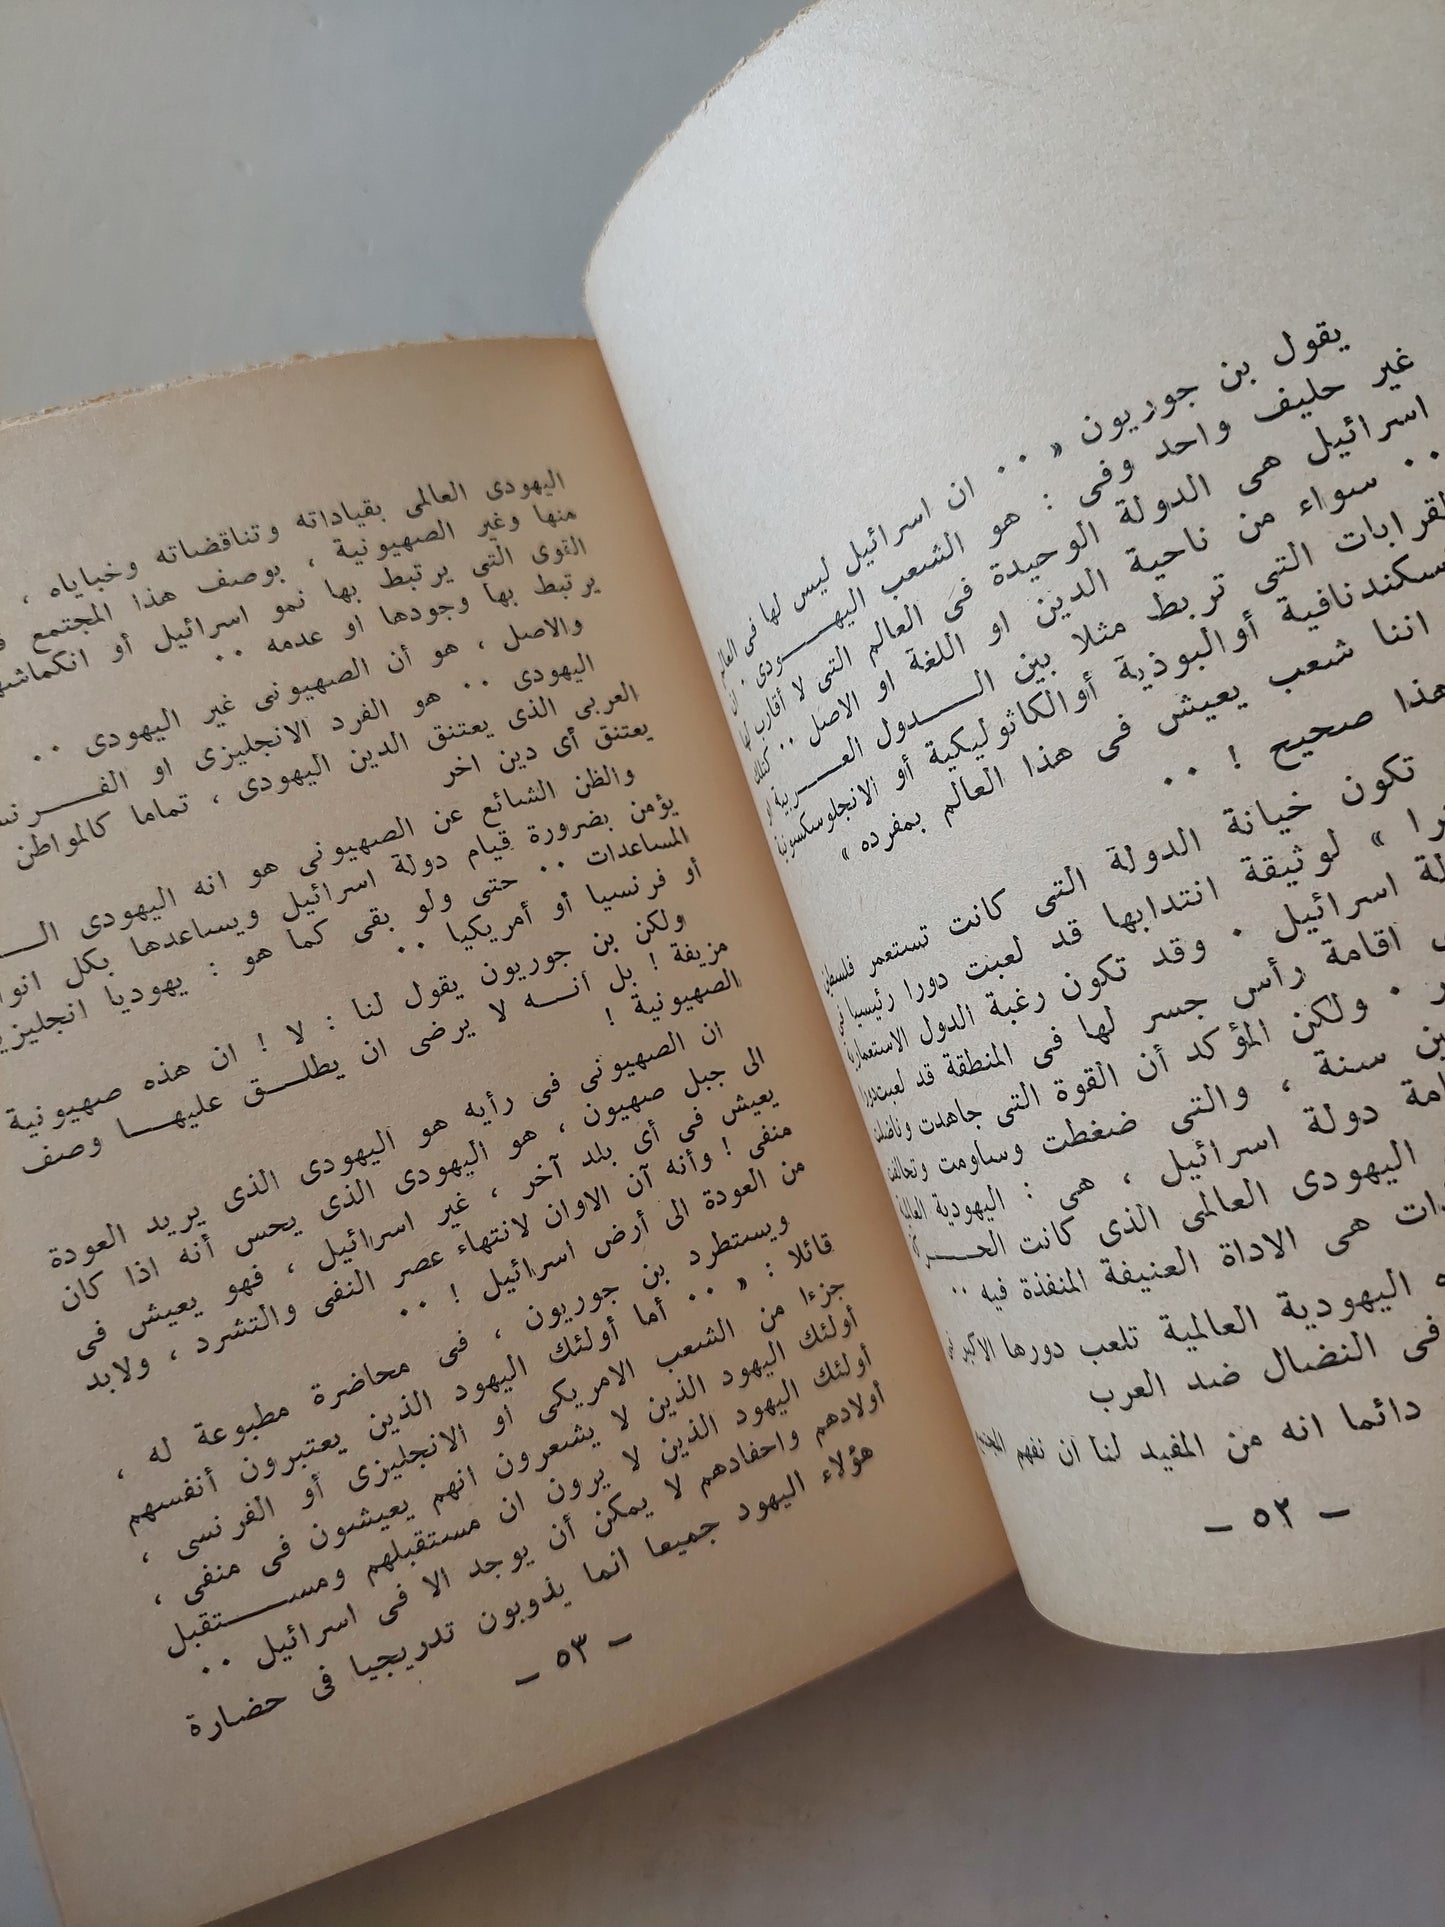 يقول بن جوريون « ٠٠ ان اسرائيل ليس لها فى العالم
غير حليف واحد وفى : هو الشعب اليهـــودى . ان
اسرائيل هى الدولة الوحيدة فى العالم التى لا أقارب لها
٠٠ سواء من ناحية الدين او اللغة او الاصل ٠٠ كتلك
القرابات التى تربط مثلا بين الـــدول العـــربية او
سكندنافية أوالبوذية أوالكاثوليكية أو الانجلوسكسونية
اننا شعب يعيش فى هذا العالم بمفرده »
هذا صحيح ! ٠٠
تكون خيانة الدولة التى كانت تستعمر فلسطين
» لوثيقة انتدابها قد لعبت دورا رئيسيا فى
اسرائيل ٠ وقد تكون رغبة الدول الاستعمارية
اقامة رأس جسر لها فى المنطقة قد لعبت دورا
٠ ولكن المؤكد أن القوة التى جاهدت وناضلت
سنة ، والتى ضغطت وساومت وتحالفت
دولة اسرائيل ، هى : اليهودية العالمية
اليهودى العالمى الذى كانت الحـــركة
هى الاداة العنيفة المنفذة فيه ٠٠
اليهودية العالمية تلعب دورها الاكبر فى
فى النضال ضد العرب
دائما انه من المفيد لنا أن نفهم المجتمع
— ٥٢ —
اليهودى العالمى بقياداته وتناقضاته وخباياه ،
منها وغير الصهيونية ، بوصف هذا المجتمع
القوى التى يرتبط بها نمو اسرائيل أو انكماشها
يرتبط بها وجودها او عدمه ٠٠
والاصل ، هو أن الصهيونى غير اليهودى ٠٠
اليهودى ٠٠ هو الفرد الانجليزى او الفـــرنسى
العربى الذى يعتنق الدين اليهودى ، تماما كالمواطن
يعتنق أى دين اخر
والظن الشائع عن الصهيونى هو انه اليهودى
يؤمن بضرورة قيام دولة اسرائيل ويساعدها بكل انواع
المساعدات ٠٠ حتى ولو بقى كما هو : يهوديا انجليزيا
أو فرنسيا أو أمريكيا ٠٠
ولكن بن جوريون يقول لنا : لا ! ان هذه صهيونية
مزيفة ! بل أنـــه لا يرضى ان يطلـــق عليهـــا وصف
الصهيونية !
ان الصهيونى فى رأيه هو اليهودى الذى يريد العودة
الى جبل صهيون ، هو اليهودى الذى يحس أنه اذا كان
يعيش فى أى بلد آخر ، غير اسرائيل ، فهو يعيش فى
منفى ! وأنه آن الاوان لانتهاء عصر النفى والتشرد ، ولابد
من العودة الى أرض اسرائيل ! ٠٠
ويستطرد بن جوريون ، فى محاضرة مطبوعة له ،
قائلا : « ٠٠ أما أولئك اليهود الذين يعتبرون أنفسهم
جزءا من الشعب الامريكى او الانجليزى أو الفرنسى ،
أولئك اليهود الذين لا يشعرون انهم يعيشون فى منفى ،
أولئك اليهود الذين لا يرون ان مستقبلهم ومســـتقبل
أولادهم واحفادهم لا يمكن أن يوجد الا فى اسرائيل ٠٠
هؤلاء اليهود جميعا انما يذوبون تدريجيا فى حضارة
— ٥٣ —